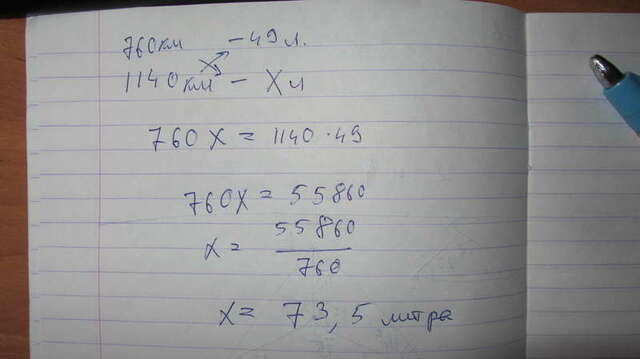 760км - 49 л.
1140км - X л
760 X = 1140 · 49
760X = 55860
x = 55860
760
x = 73,5 литра